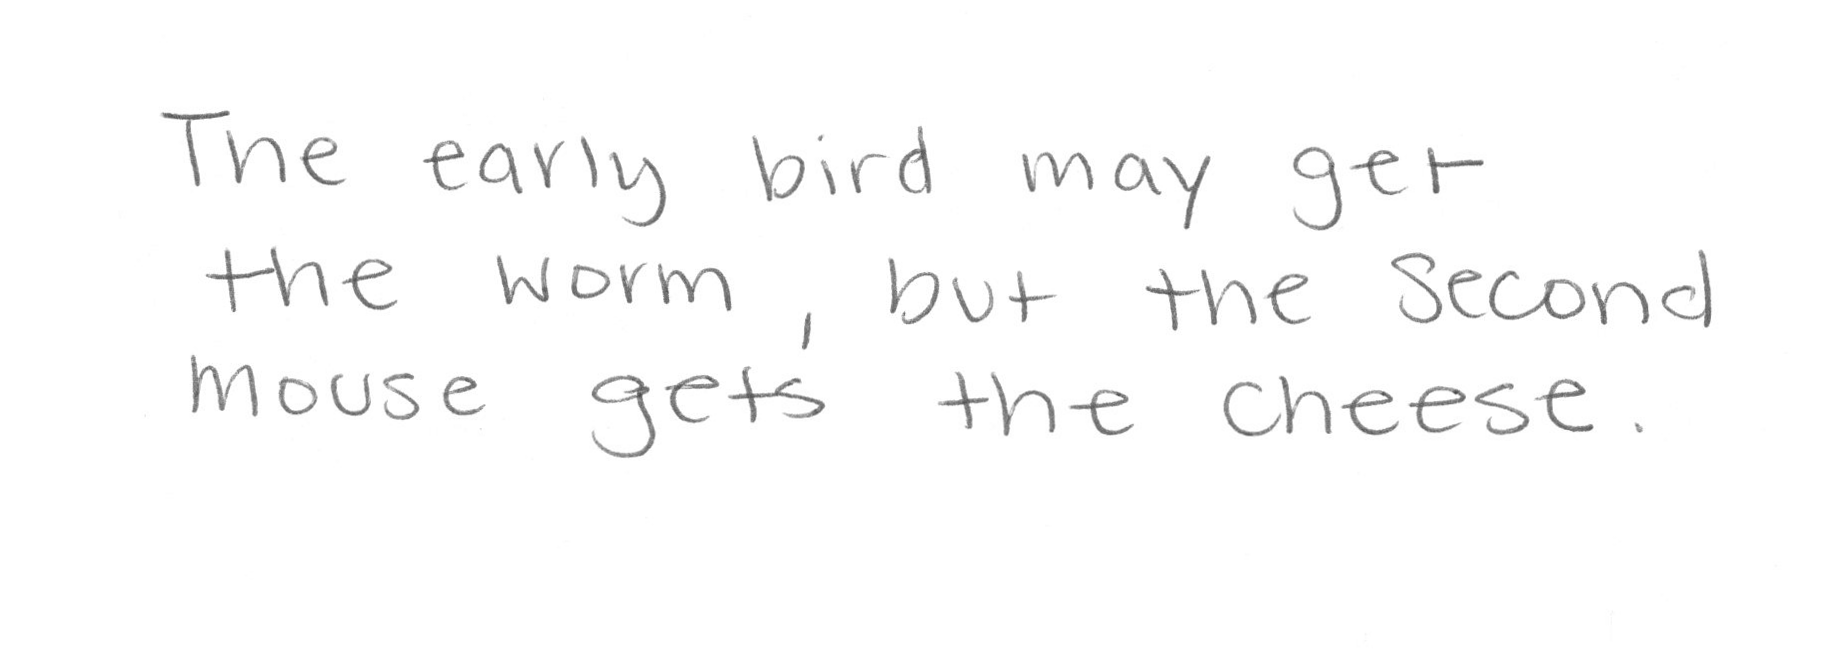 The early bird may get
the worm, but the second
mouse gets the cheese.